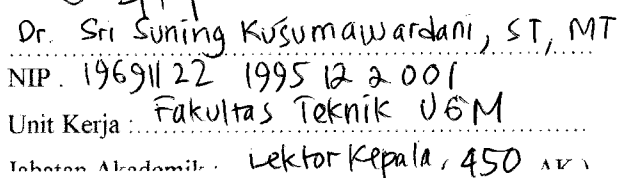 Dr. Sri Suning Kusumawardani, ST, MT
NIP. 19691122 1995 12 2 001
Unit Kerja : Fakultas Teknik UGM
Jabatan Akademik : Lektor Kepala, 450 AK)